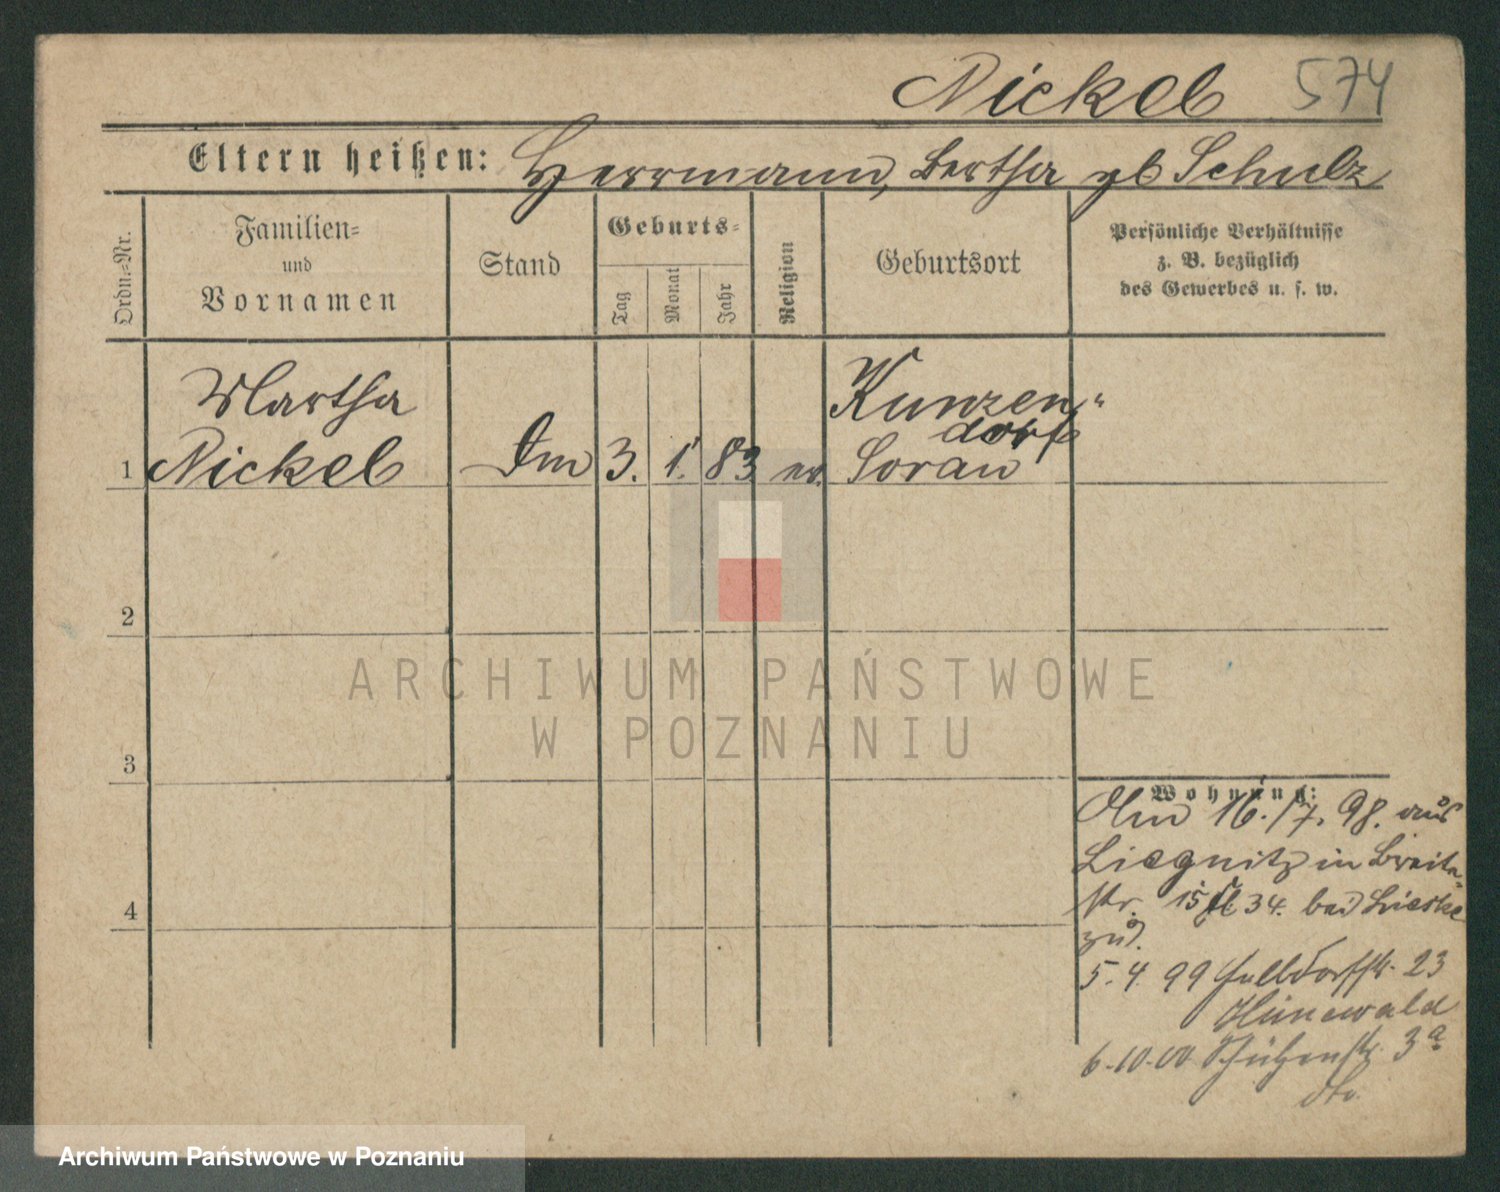 Nickel 574
Eltern heißen: Herrmann, Bertha gb Schulz
Ordn.=Nr.
Familien=
und
Vornamen
Stand
Geburts=
Tag
Monat
Jahr
Religion
Geburtsort
Persönliche Verhältnisse
z. B. bezüglich
des Gewerbes u. s. w.
Martha
Nickel
1
3. 1. 83 ev.
Kunzen"
dorf
Sorau
2
3
4
Wohnung:
16./7. 98. aus
Liegnitz in Breite-
str. 15 34. bei
zu.
5. 4. 99 Halbdorfstr. 23
Hünewald
6.10.00 Schützenstr. 3a
dto.
ARCHIWUM PAŃSTWOWE
W POZNANIU
Archiwum Państwowe w Poznaniu